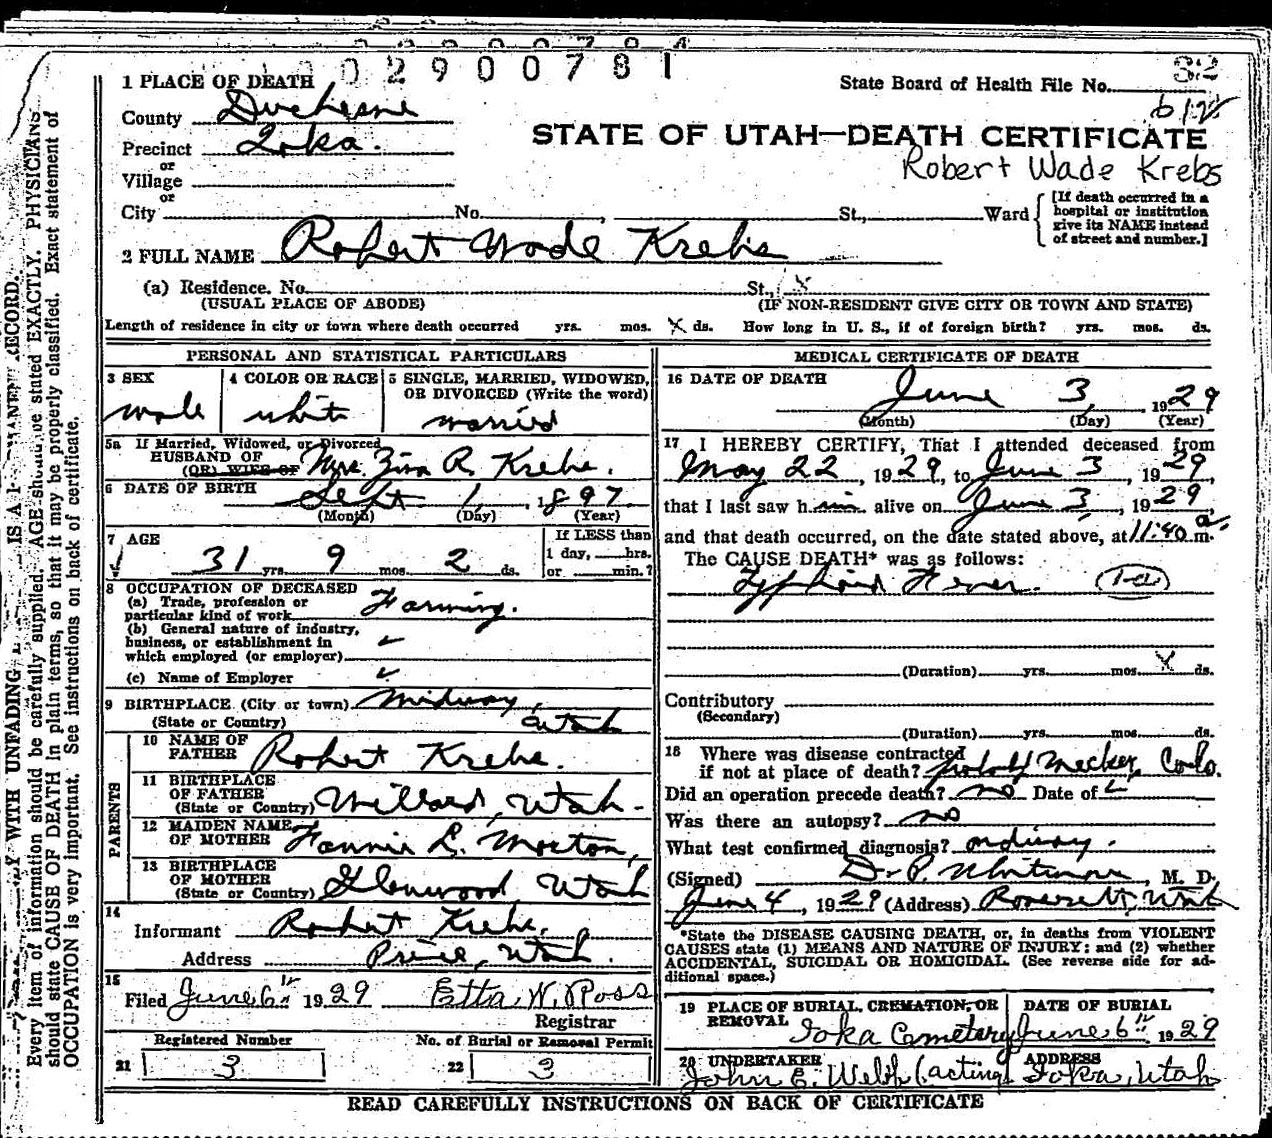 02900781
1 PLACE OF DEATH
State Board of Health File No. 32
612
County Duchesne
STATE OF UTAH—DEATH CERTIFICATE
Precinct Ioka.
Robert Wade Krebs
or
Village
or
City No. , St., Ward
[If death occurred in a
hospital or institution
give its NAME instead
of street and number.]
2 FULL NAME Robert Wade Krebs
(a) Residence. No. St., X
(USUAL PLACE OF ABODE) (IF NON-RESIDENT GIVE CITY OR TOWN AND STATE)
Length of residence in city or town where death occurred yrs. mos. X ds. How long in U. S., if of foreign birth? yrs. mos. ds.
PERSONAL AND STATISTICAL PARTICULARS
3 SEX
male
4 COLOR OR RACE
white
5 SINGLE, MARRIED, WIDOWED,
OR DIVORCED (Write the word)
married
5a If Married, Widowed, or Divorced
HUSBAND OF
(OR) WIFE OF Mrs. R. Krebs.
6 DATE OF BIRTH Sept. 1, 1897
(Month) (Day) (Year)
7 AGE
31 yrs. 9 mos. 2 ds.
If LESS than
1 day, hrs.
or min.?
8 OCCUPATION OF DECEASED
(a) Trade, profession or
particular kind of work Farming.
(b) General nature of industry,
business, or establishment in
which employed (or employer)
(c) Name of Employer
9 BIRTHPLACE (City or town) Midway,
(State or Country) Utah
PARENTS
10 NAME OF
FATHER Robert Krebs.
11 BIRTHPLACE
OF FATHER
(State or Country) Willard, Utah.
12 MAIDEN NAME
OF MOTHER Fannie L. Morton,
13 BIRTHPLACE
OF MOTHER
(State or Country) Glenwood Utah
14
Informant Robert Krebs.
Address Price, Utah.
15
Filed June 6th 1929 Etta W. Ross
Registrar
Registered Number
21 3
No. of Burial or Removal Permit
22 3
MEDICAL CERTIFICATE OF DEATH
16 DATE OF DEATH
June 3, 1929
(Month) (Day) (Year)
17 I HEREBY CERTIFY, That I attended deceased from
May 22, 1929, to June 3, 1929
that I last saw him alive on June 3, 1929
and that death occurred, on the date stated above, at 11:40 a. m.
The CAUSE DEATH* was as follows:
Typhoid Fever. (1-a)
(Duration) yrs. mos. X ds.
Contributory
(Secondary)
(Duration) yrs. mos. ds.
18 Where was disease contracted
if not at place of death? probably Meeker, Colo.
Did an operation precede death? no Date of
Was there an autopsy? no
What test confirmed diagnosis? ordinary.
(Signed) Dr. P. Whitmore, M. D.
June 4, 1929 (Address) Roosevelt, Utah
*State the DISEASE CAUSING DEATH, or, in deaths from VIOLENT
CAUSES state (1) MEANS AND NATURE OF INJURY; and (2) whether
ACCIDENTAL, SUICIDAL OR HOMICIDAL. (See reverse side for ad-
ditional space.)
19 PLACE OF BURIAL, CREMATION, OR
REMOVAL Ioka Cemetery
DATE OF BURIAL
June 6th 1929
20 UNDERTAKER
John E. Webb (acting)
ADDRESS
Ioka, Utah
READ CAREFULLY INSTRUCTIONS ON BACK OF CERTIFICATE
Every item of information should be carefully supplied. AGE should be stated EXACTLY. PHYSICIANS
should state CAUSE OF DEATH in plain terms, so that it may be properly classified. Exact statement of
OCCUPATION is very important. See instructions on back of certificate.